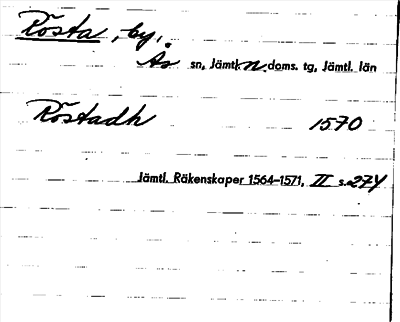 Rösta, by,
Ås sn, Jämtl. n. doms. tg, Jämtl. län
Röstadh 1570
Jämtl. Räkenskaper 1564–1571, II s. 274